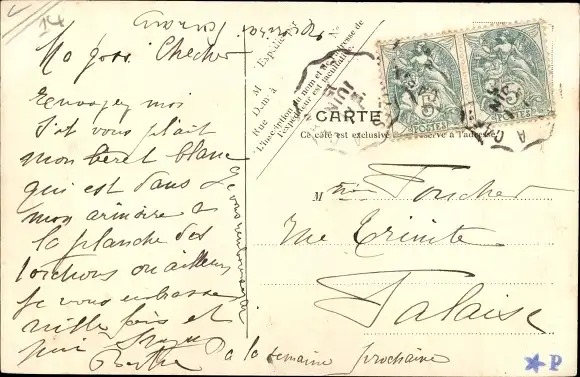 14
Ma gross. Checher
renvoyez moi
s'il vous plait
mon béret blanc
qui est dans
mon armoire a
la planche des
torchons ou ailleurs
Je vous embrasse
mille fois et
puis
Berthe
a la semaine prochaine
Je vous rembourserai
M
Expéditeur
Nº
Dem à
Rue
L'inscription du nom et de l'adresse de
l'expéditeur est facultative.
CARTE
Ce côté est exclusivement réservé à l'adresse
5
POSTES
5
POSTES
JUIN
Mme Foucher
Rue Trinité
Falaise
P